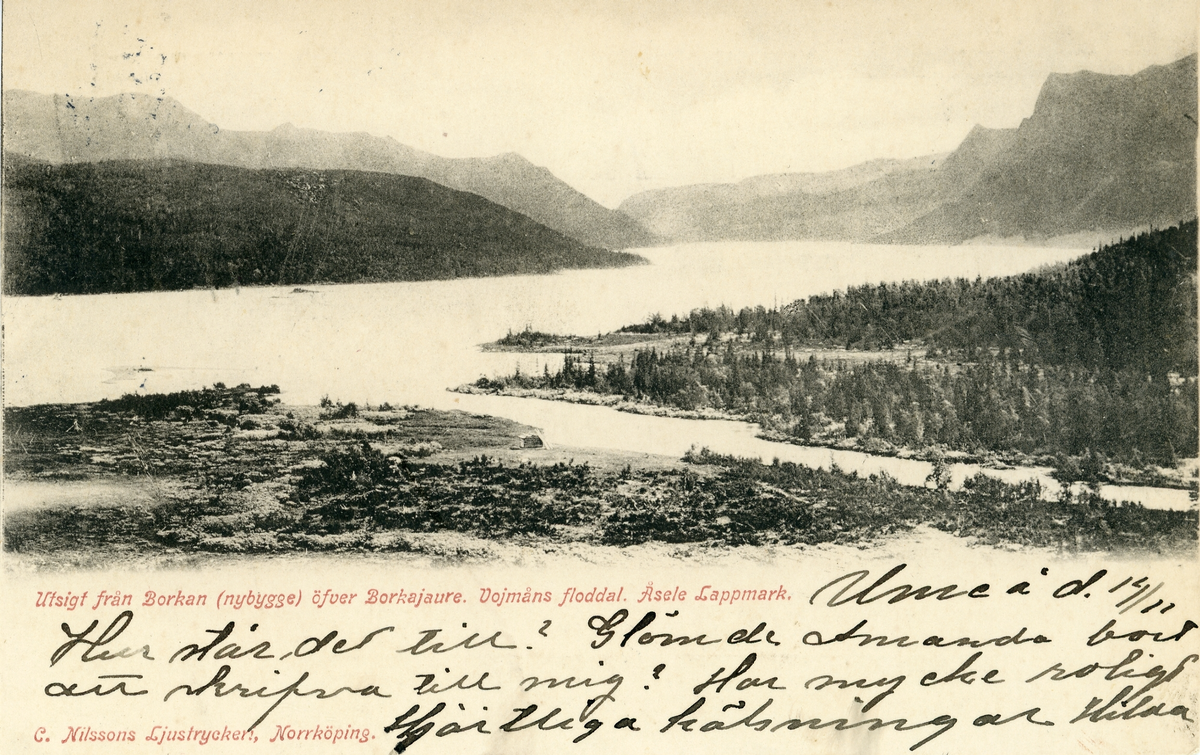 Utsigt från Borkan (nybygge) öfver Borkajaure. Vojmåns floddal. Åsele Lappmark.
Umeå d. 14/11
Hur står det till? Glömde Amanda bort
att skrifva till mig? Har mycke roligt
Hjärtliga hälsningar Hilda
C. Nilssons Ljustryckeri, Norrköping.